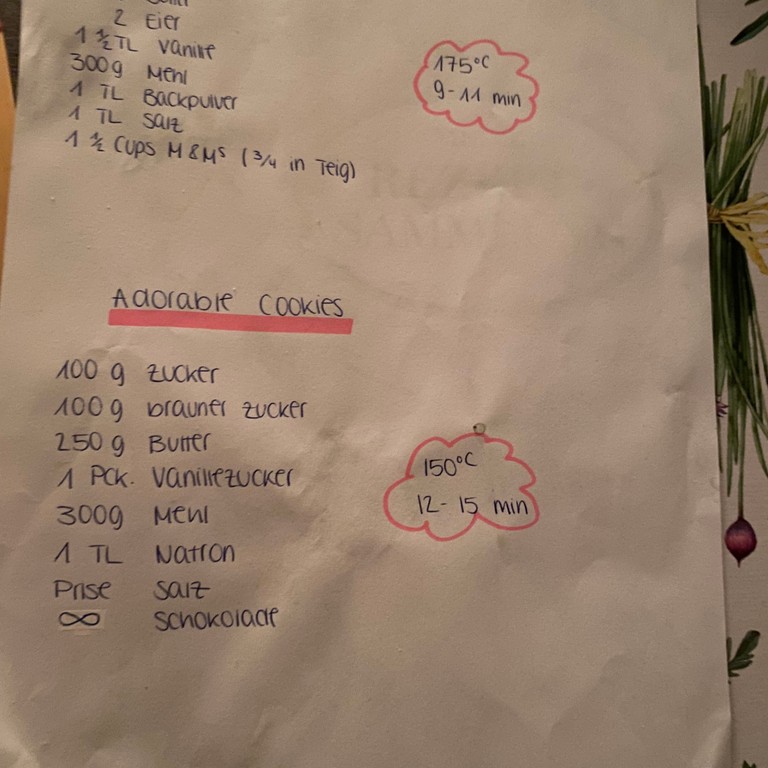 2 Eier
1 ½ TL Vanille
300g Mehl
1 TL Backpulver
1 TL Salz
1 ½ Cups M&Ms (3/4 in Teig)
175°C
9-11 min
Adorable Cookies
100 g Zucker
100g brauner Zucker
250g Butter
1 Pck. Vanillezucker
300g Mehl
1 TL Natron
Prise Salz
∞ Schokolade
150°C
12-15 min